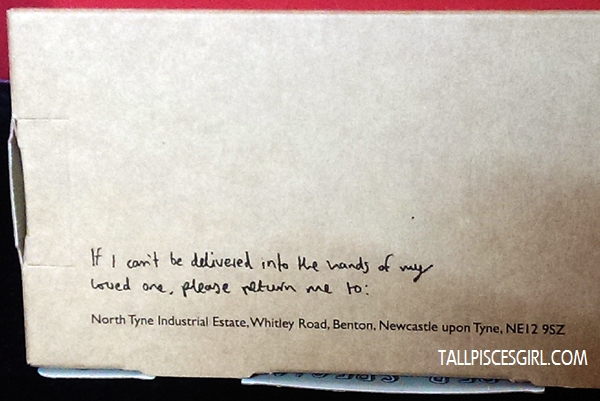 If I can't be delivered into the hands of my
loved one, please return me to:
North Tyne Industrial Estate, Whitley Road, Benton, Newcastle upon Tyne, NE12 9SZ
TALLPISCESGIRL.COM